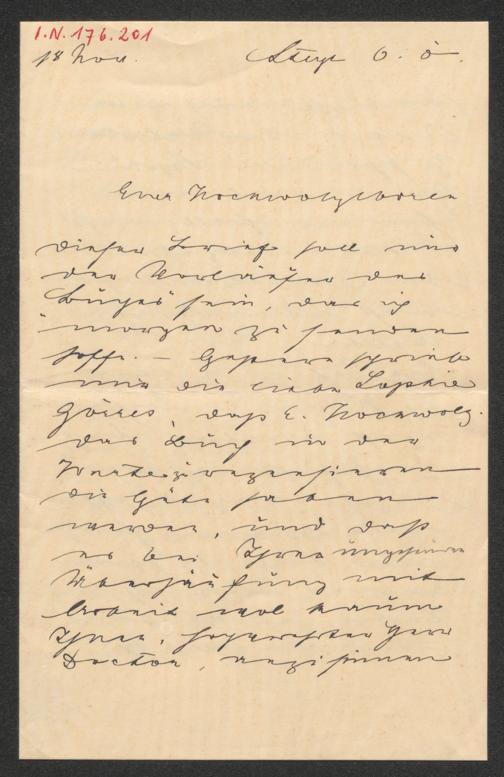 I.N. 176.201
18 Nov. Steyr O. Ö.
Euer Hochwolgeboren
dieser Brief soll nur
der Vorläufer des
Buches sein, das ich
morgen zu senden
hoffe. – Gestern schrieb
mir die liebe Sophie
Görres, daß E. Hochwolg.
das Buch in der
zu rezensieren
die Güte haben
werden, und daß
es bei Ihrer ungeheuren
Überhäufung mit
Arbeit wol kaum
Ihnen, hochverehrter Herr
Doctor,